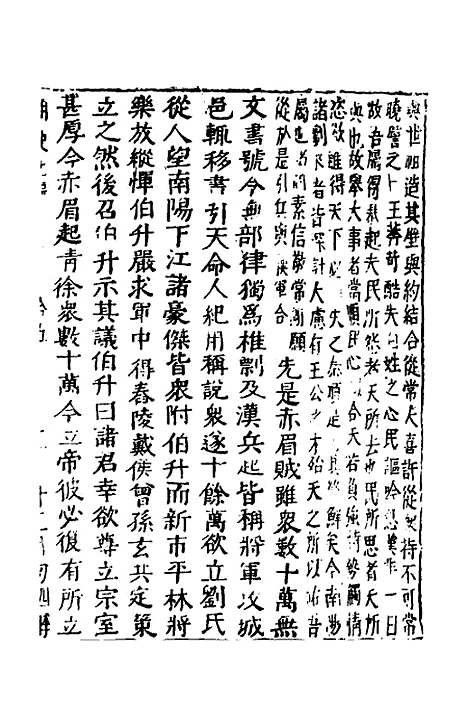 與世祖造其壁與約結合從常大喜許從待不可常
曉譬之王莽苛酷失百姓之心民謳吟思漢非一日
故吾屬得起夫民所怨者天所去也民所思者天所
與也故舉大事者當順民心合天若負強恃勢觸情
恣欲雖得天下必失之秦項是鮮矣今南陽
諸劉來者皆深計大慮有王公才殆天之所以祐吾
屬也素信敬常謝願
從於是引兵與漢軍合
先是赤眉賊雖衆數十萬無
文書號令無部律獨爲椎剽及漢兵起皆稱將軍攻城
邑輒移書引天命人紀用稱說衆遂十餘萬欲立劉氏
從人望南陽下江諸豪傑皆衆附伯升而新市平林將
樂放縱憚伯升嚴求軍中得舂陵戴侯曾孫玄共定策
立之然後召伯升示其議伯升曰諸君幸欲尊立宗室
甚厚今赤眉起青徐衆數十萬今立帝彼必復有所立